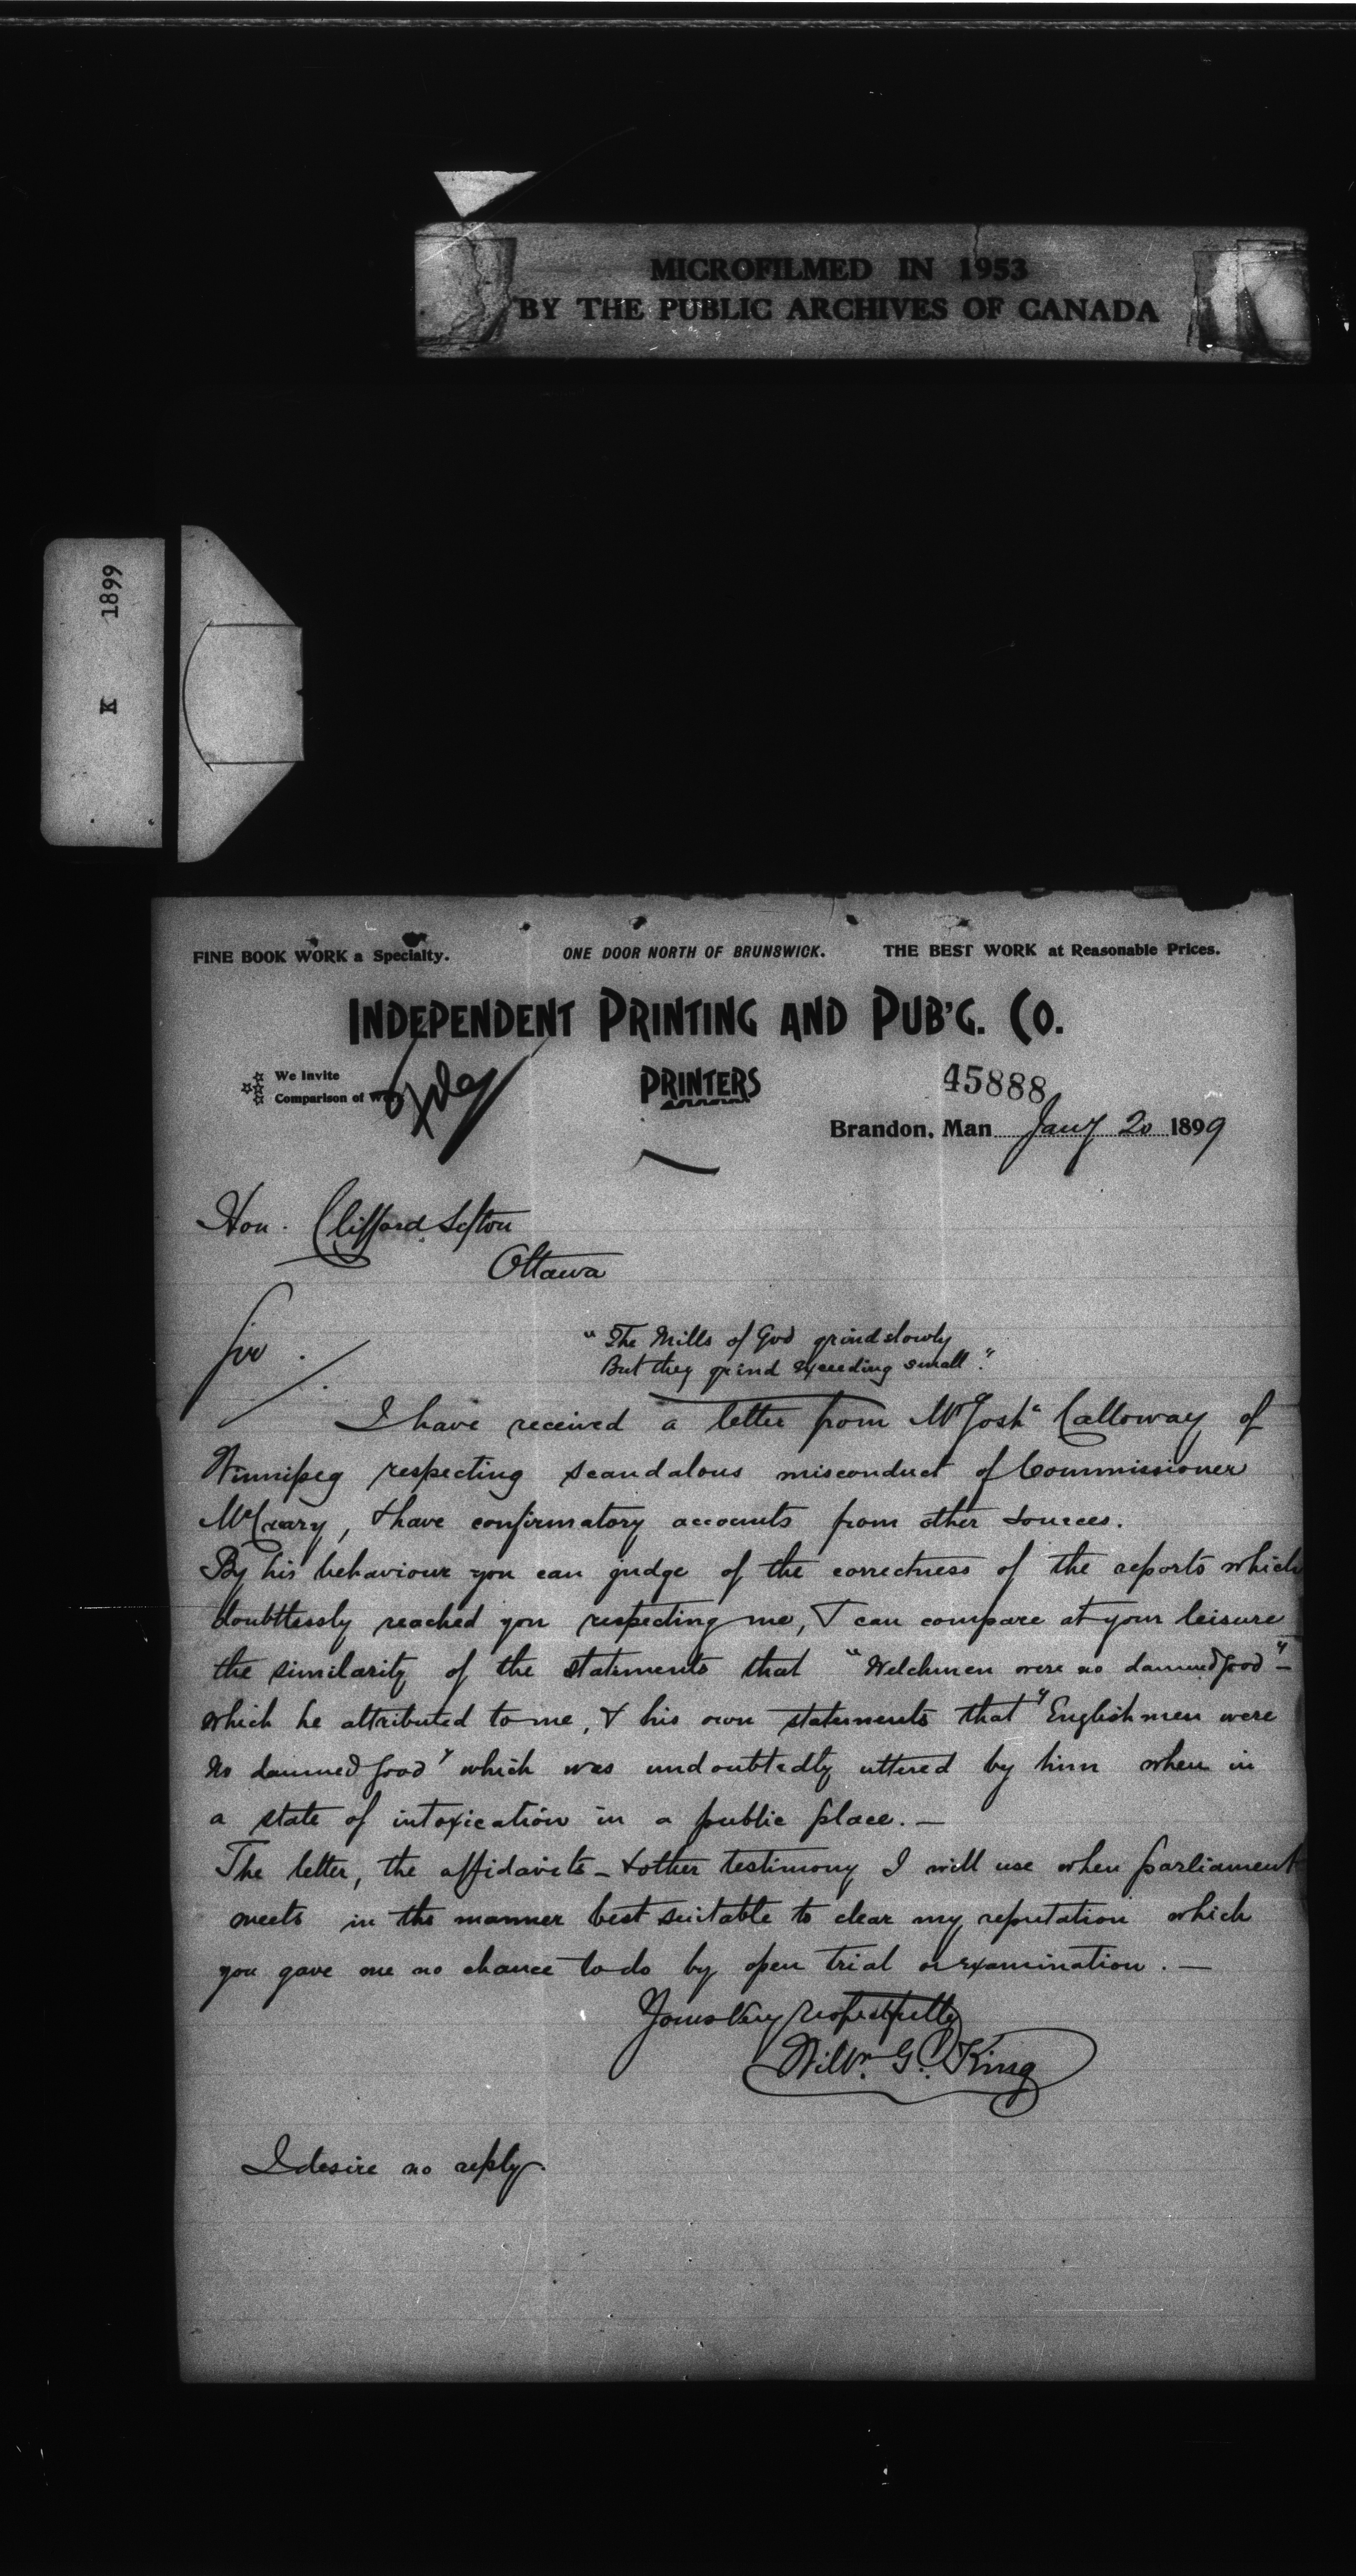 MICROFILMED IN 1953
BY THE PUBLIC ARCHIVES OF CANADA
K 1899
FINE BOOK WORK a Specialty. ONE DOOR NORTH OF BRUNSWICK. THE BEST WORK at Reasonable Prices.
INDEPENDENT PRINTING AND PUB'G. CO.
We Invite
Comparison of Work
PRINTERS
45888
Brandon, Man Jany 20 1899
Hon. Clifford Sifton
Ottawa
Sir.
"The Mills of God grind slowly
But they grind exceeding small".
I have received a letter from Mr Josha Calloway of
Winnipeg respecting scandalous misconduct of Commissioner
McCreary, & have confirmatory accounts from other sources.
By his behaviour you can judge of the correctness of the reports which
doubtlessly reached you respecting me, & can compare at your leisure
the similarity of the statements that "Welchmen were no damned good" –
which he attributed to me, & his own statements that "Englishmen were
no damned good" which was undoubtedly uttered by him when in
a state of intoxication in a public place. —
The letter, the affidavits – & other testimony I will use when parliament
meets in the manner best suitable to clear my reputation which
you gave me no chance to do by open trial or examination. —
Yours Very Respectfully
Willm. G. King
I desire no reply.